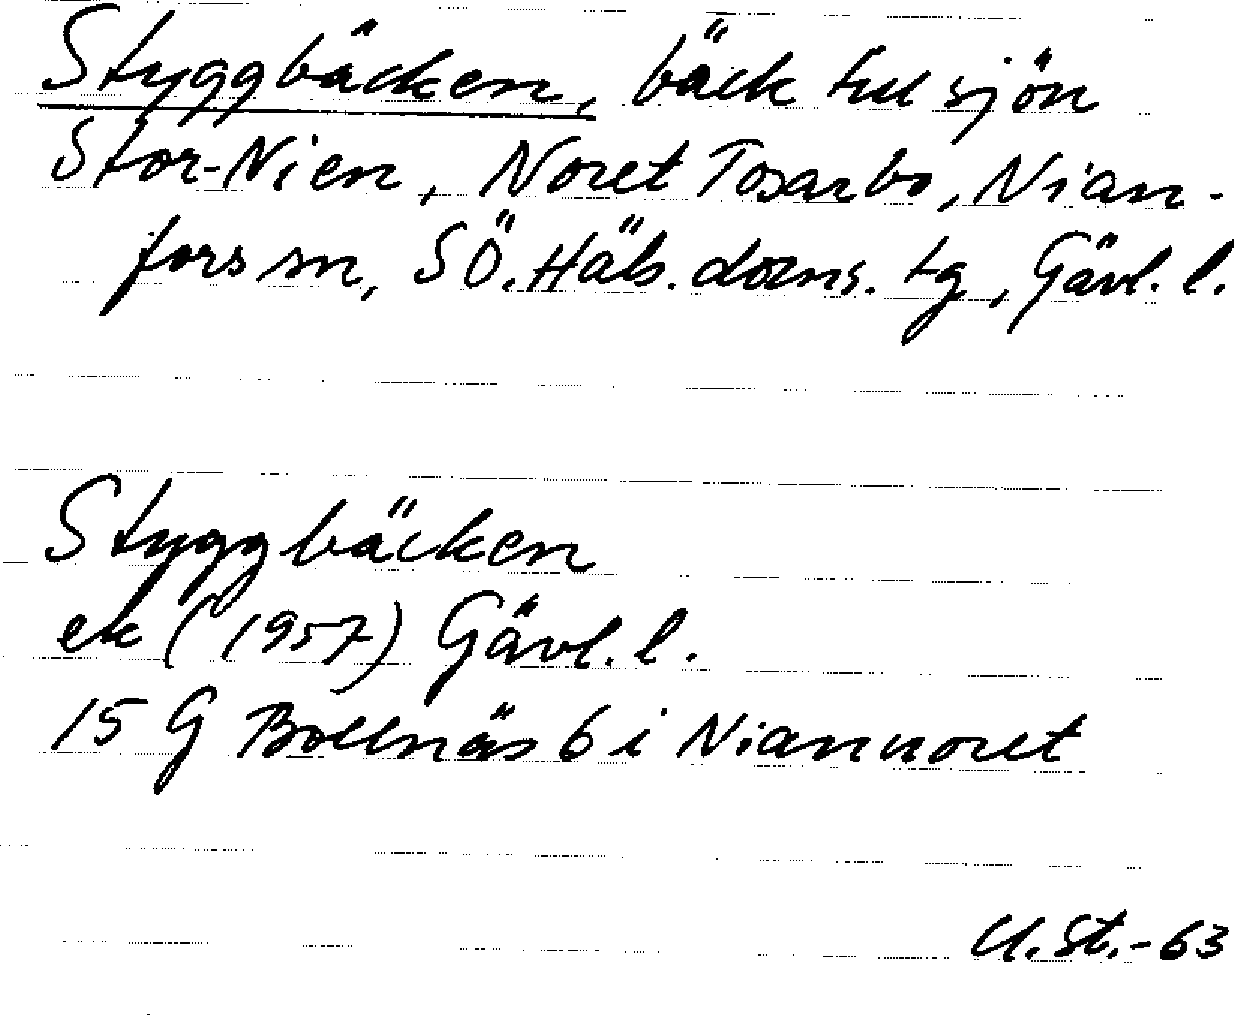 Styggbäcken, bäck till sjön
Stor-Nien, Noret Tosarbo, Nian-
fors sn, SÖ. Häls. doms. tg, Gävl. l.
Styggbäcken
ek (1957) Gävl. l.
15 G Bollnäs 6 i Niannoret
U. St. -63